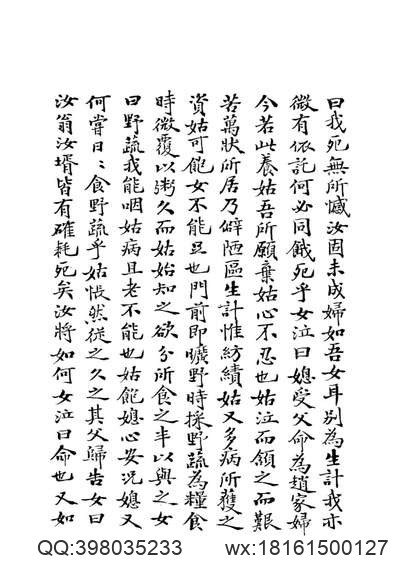 曰我死無所憾汝固未成婦如吾女耳别為生計我亦
微有依託何必同餓死乎女泣曰媳受父命為趙家婦
今若此養姑吾所願棄姑心不忍也姑泣而頷之而艱
苦萬狀所居乃僻陋區生計惟紡績姑又多病所獲之
資姑可飽女不能旦也門前即曠野時採野蔬為糧食
時微覆以粥久而姑始知之欲分所食之半以與之女
曰野蔬我能咽姑病且老不能也姑飽媳心安况媳又
何嘗日〻食野蔬乎姑悵然從之久之其父歸告女曰
汝翁汝壻皆有確耗死矣汝將如何女泣曰命也又如
QQ:398035233 wx:18161500127